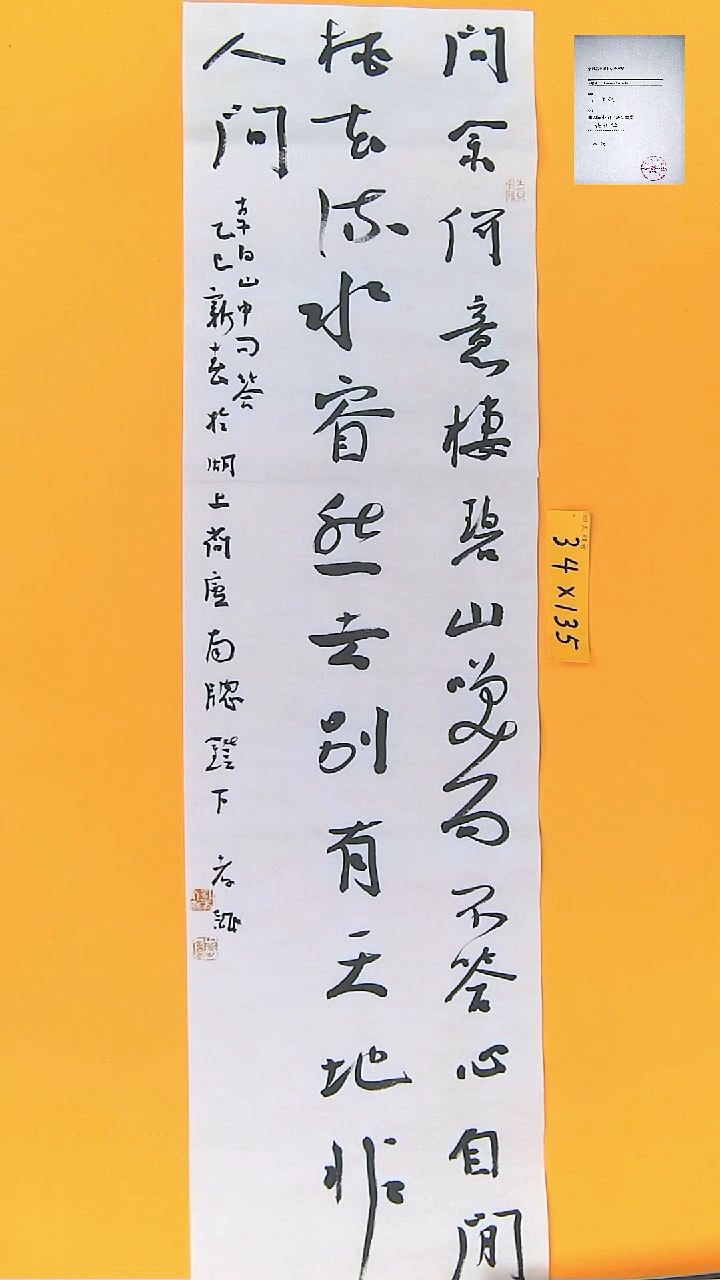 問余何意棲碧山笑而不答心自閒
桃花流水窅然去別有天地非
人間
李白山中问答
乙巳新春於湖上荷廬南牕鐙下
34×135